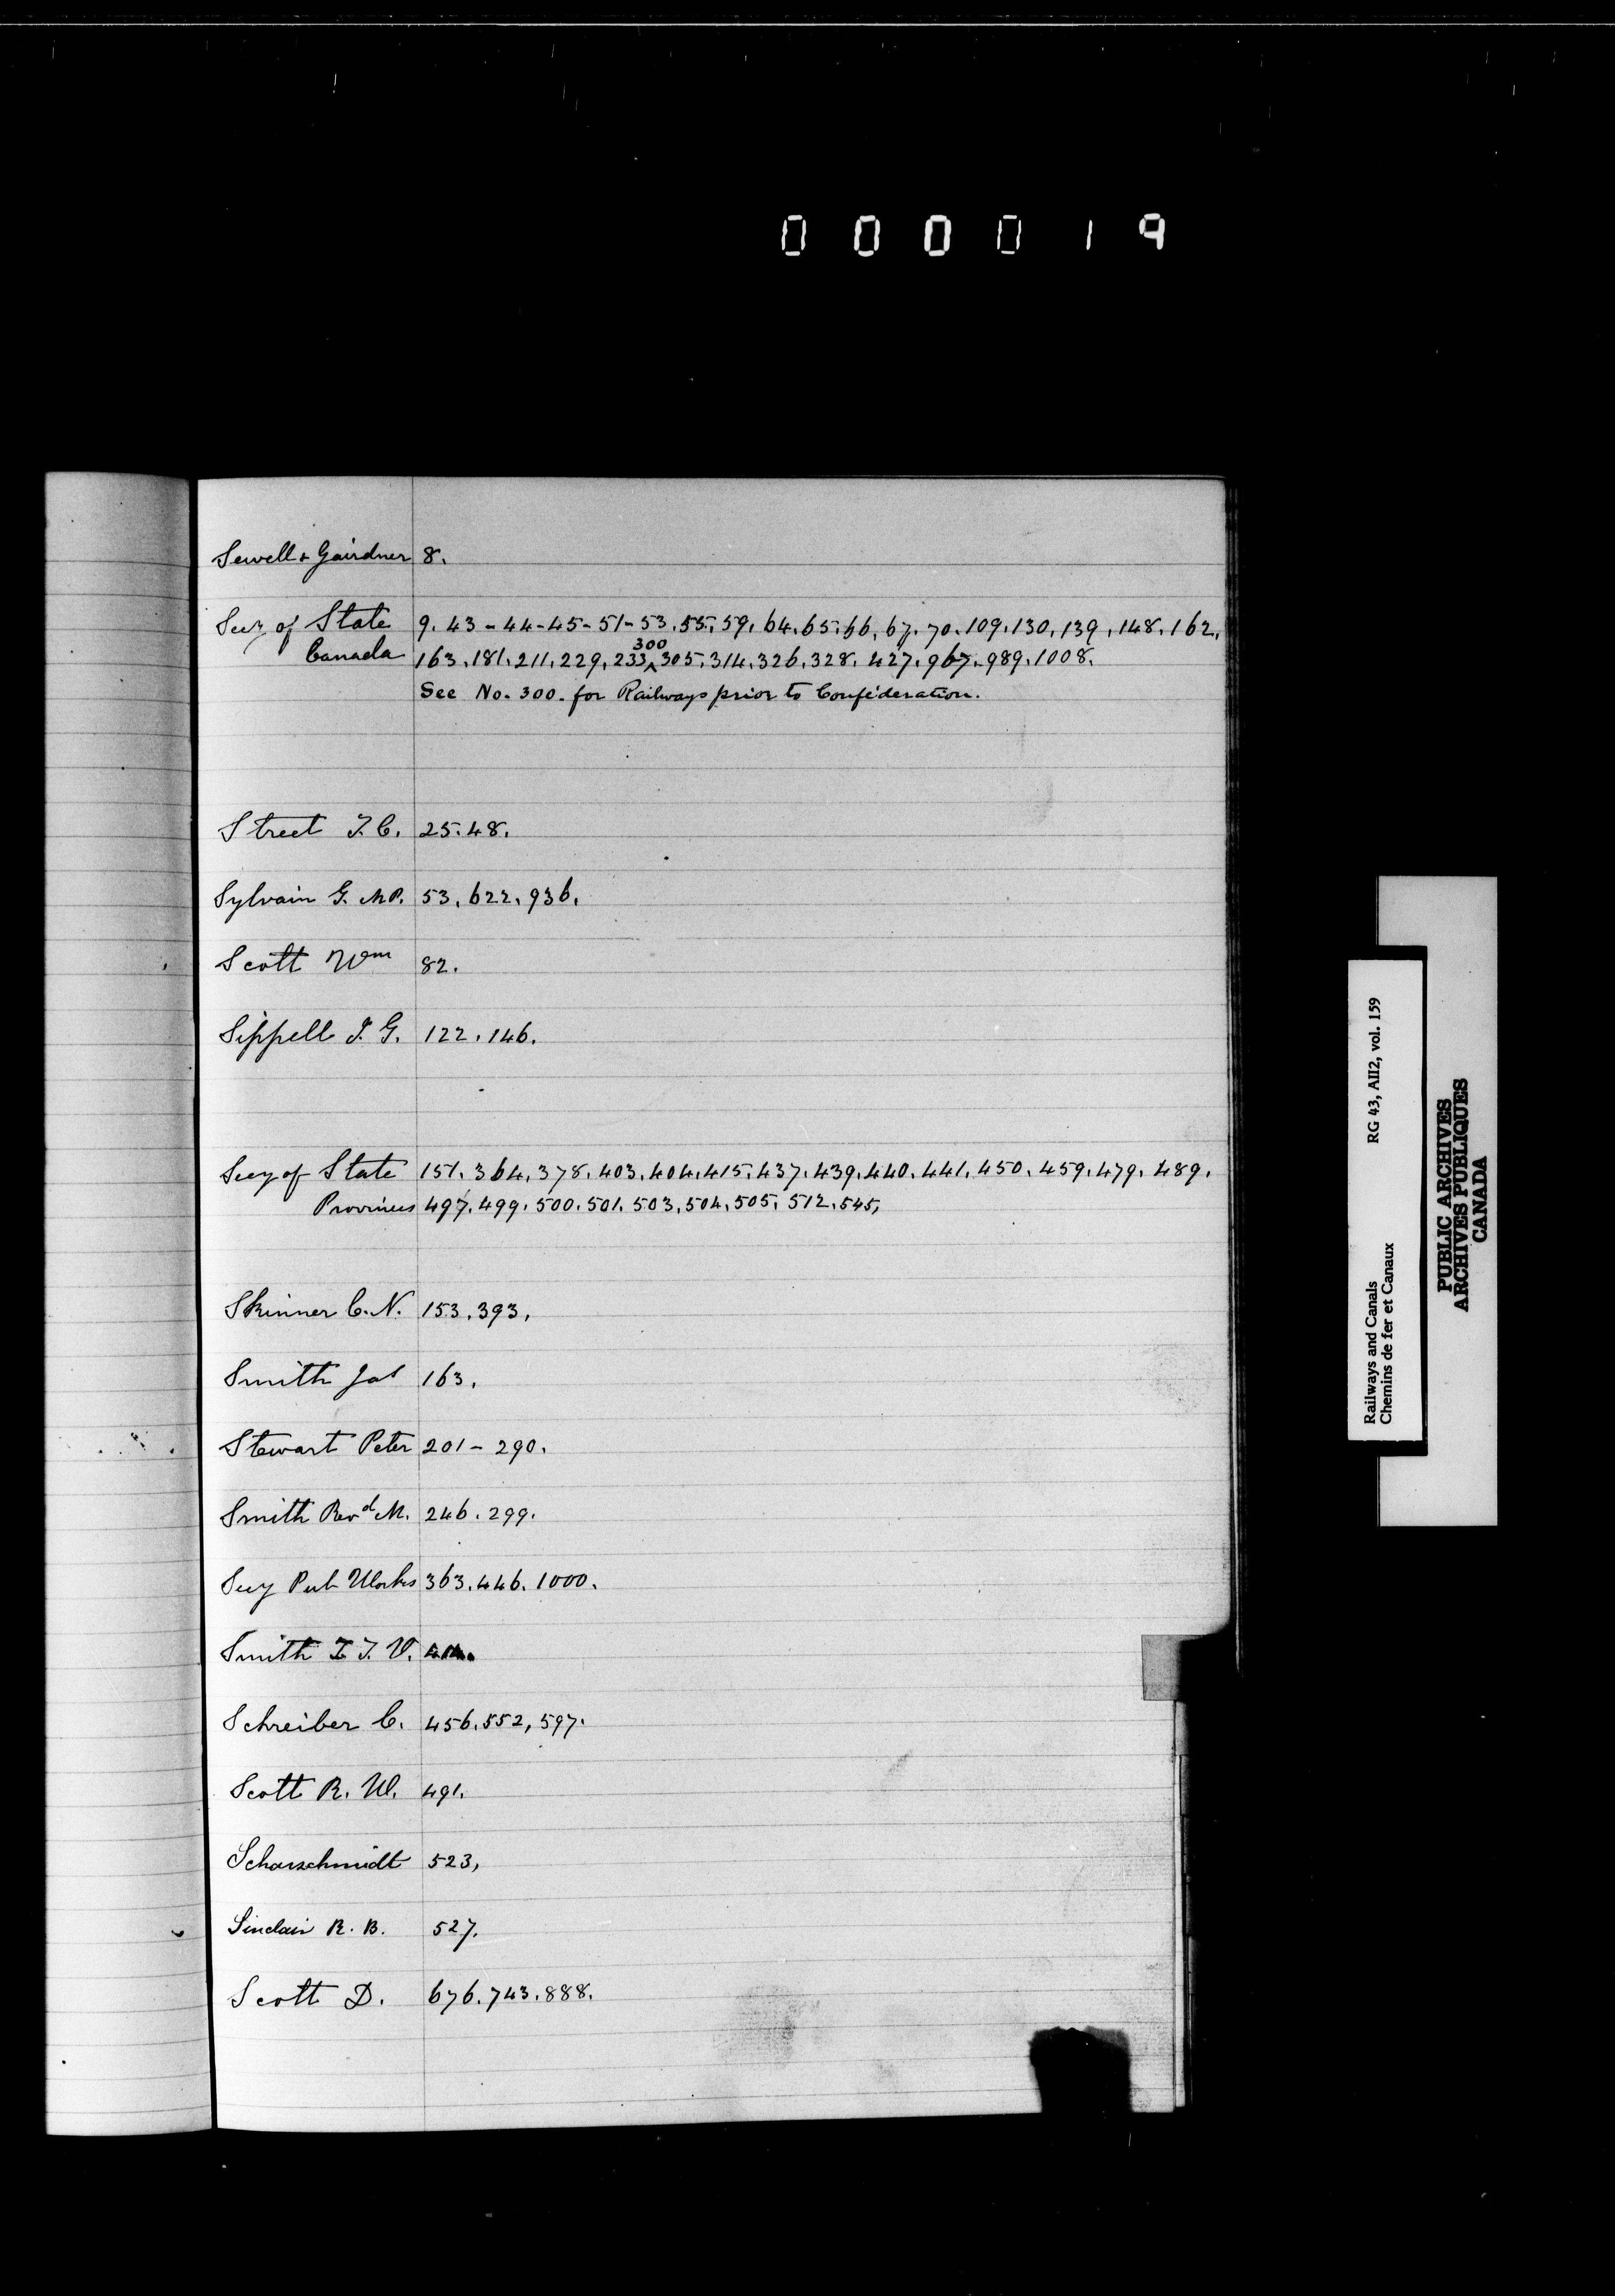 000019
Sewell & Gairdner 8.
Secy of State 9. 43 - 44 - 45 - 51 - 53. 55. 59. 64. 65. 66. 67. 70. 109. 130, 139, 148. 162.
Canada 163. 181. 211. 229. 233. 300 305. 314. 326. 328. 427. 967. 989. 1008.
See No. 300. for Railways prior to Confederation.
Street T. C. 25. 48.
Sylvain G. M.P. 53. 622. 936.
Scott Wm 82.
Sippell J. G. 122. 146.
Secy of State 151. 364. 378. 403. 404. 415. 437. 439. 440. 441. 450. 459. 479. 489.
Provinces 497. 499. 500. 501. 503. 504. 505. 512. 545,
Skinner C. N. 153. 393.
Smith Jas 163.
Stewart Peter 201 - 290.
Smith Revd M. 246. 299.
Secy Pub Works 363. 446. 1000.
Smith I. J. V.
Schreiber C. 456. 552, 597.
Scott R. W. 491.
Scharschmidt 523,
Sinclair R. B. 527.
Scott D. 676. 743. 888.
Railways and Canals RG 43, AII2, vol. 159
Chemins de fer et Canaux
PUBLIC ARCHIVES
ARCHIVES PUBLIQUES
CANADA